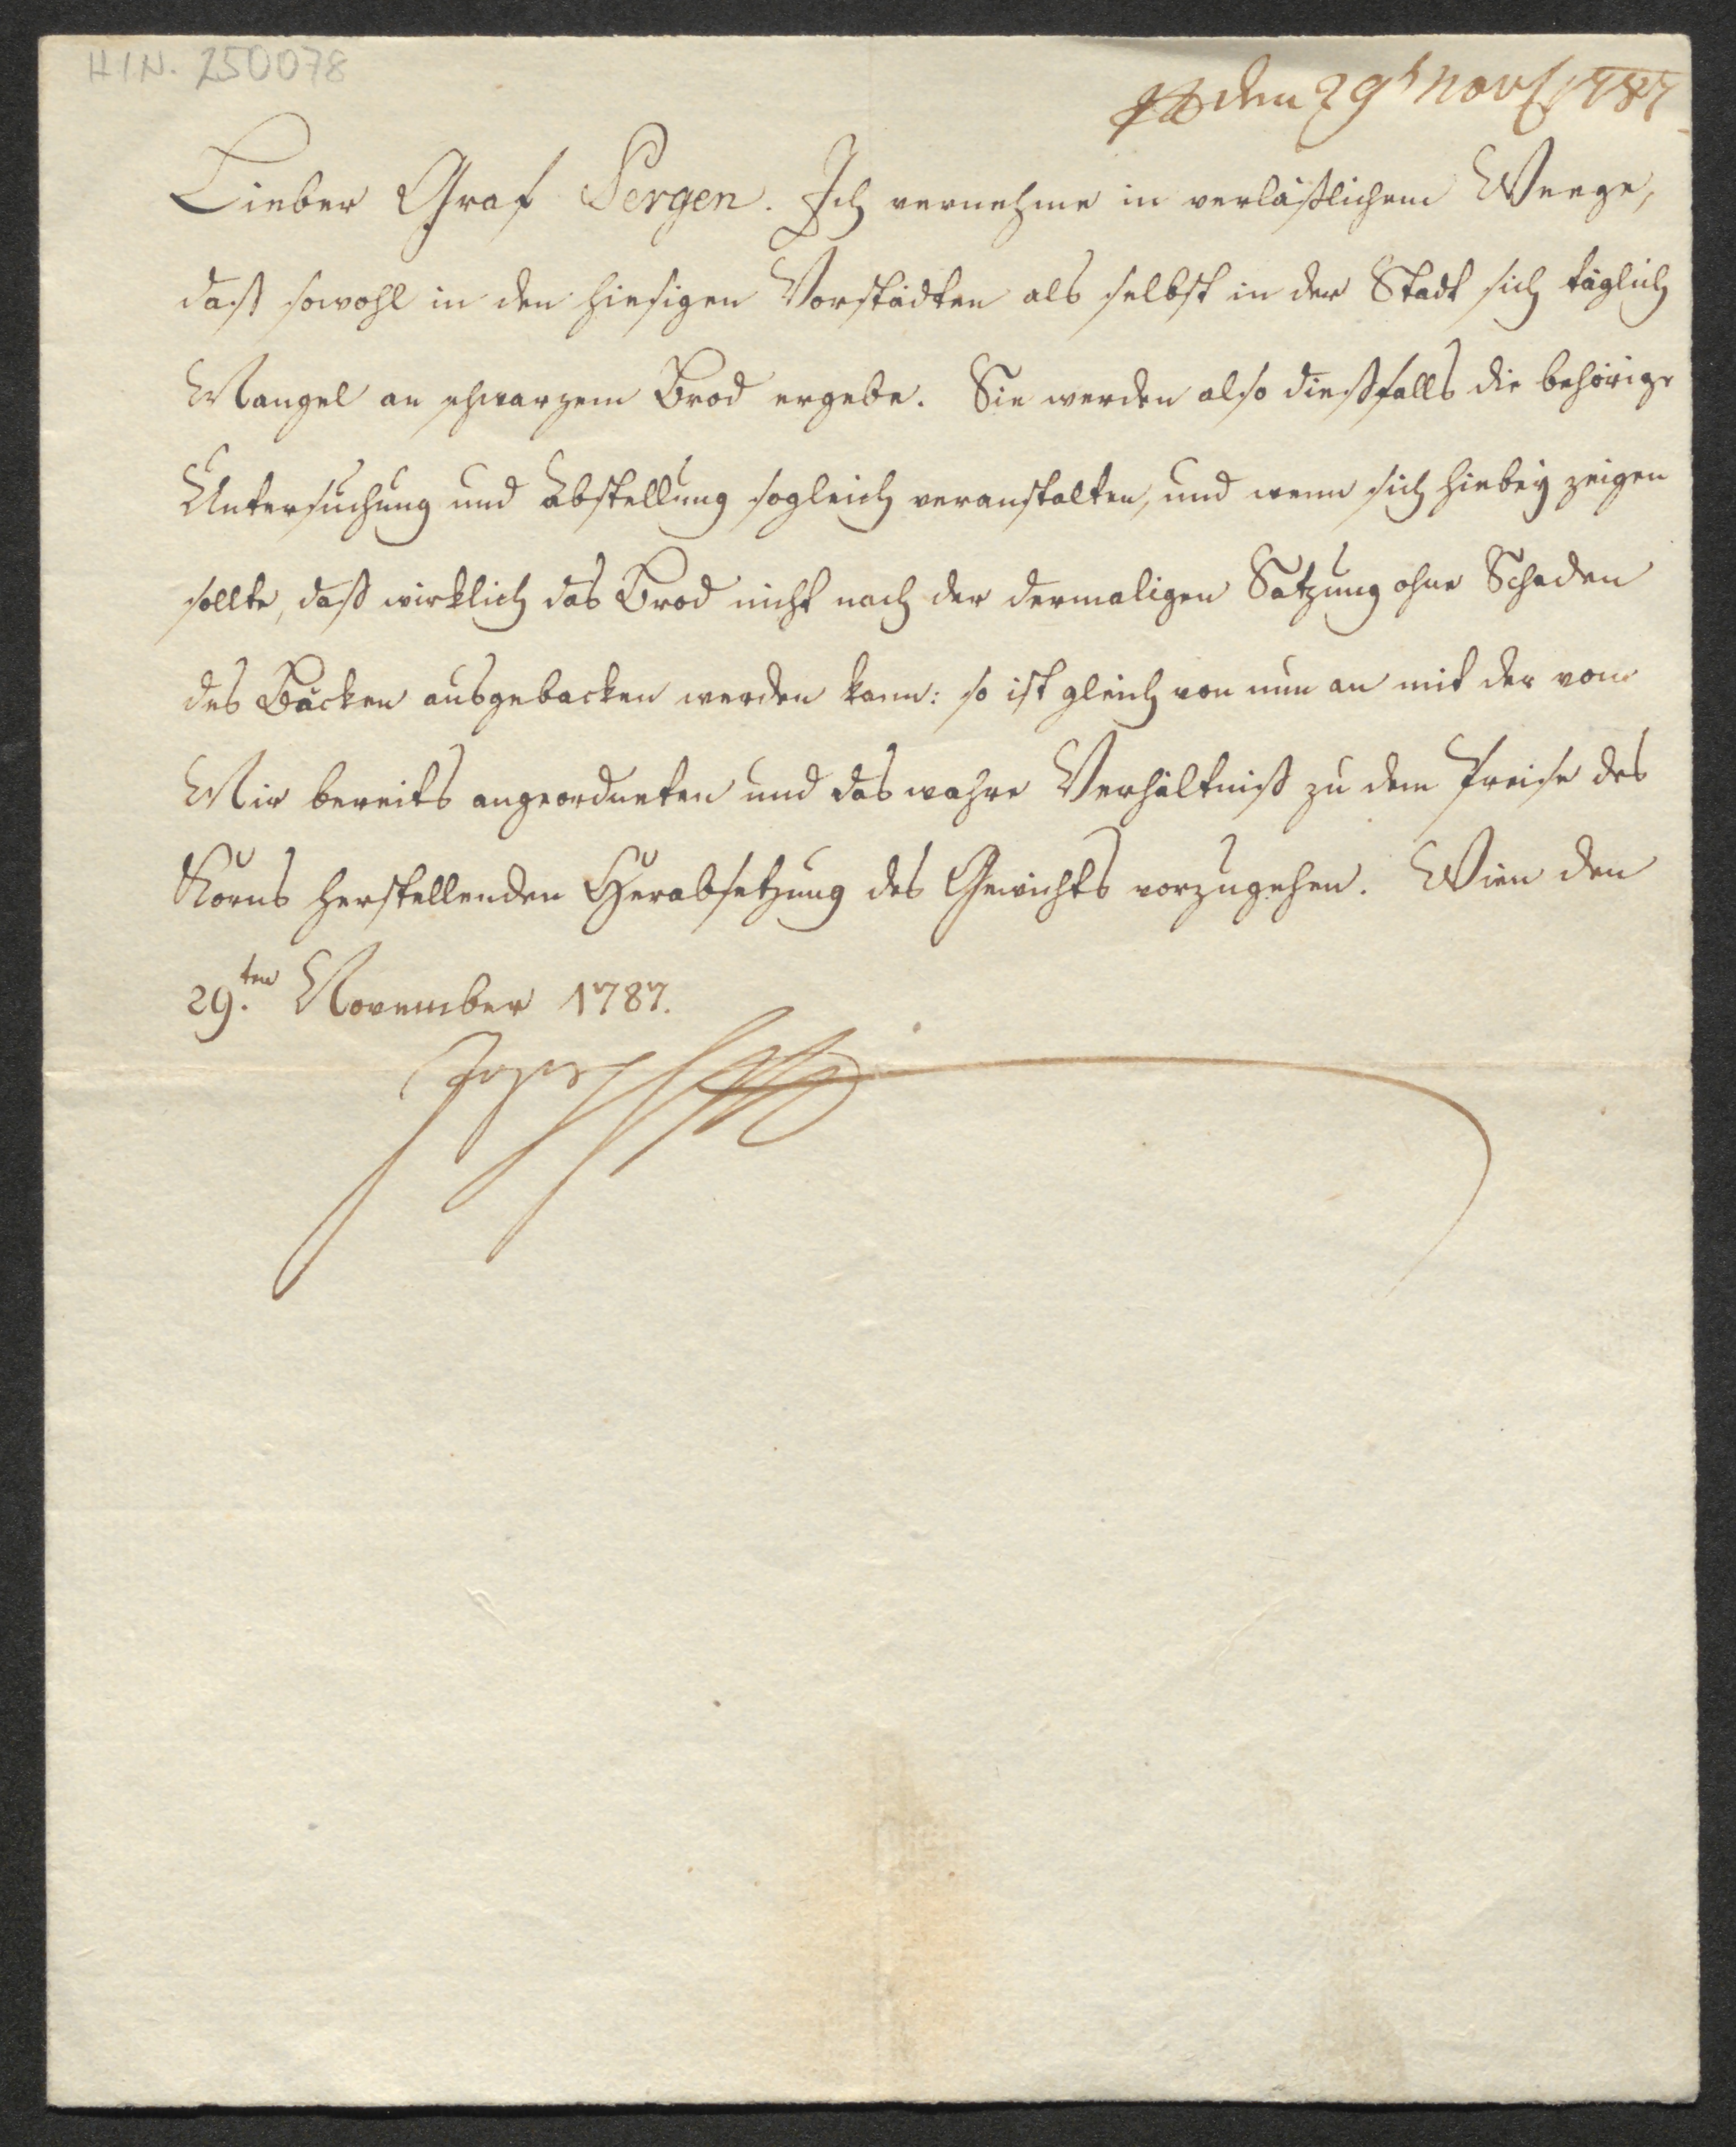 H.I.N. 250078
den 29t Novb 1787
Lieber Graf Pergen. Ich vernehme in verläßlichem Weege,
daß sowohl in den hiesigen Vorstädten als selbst in der Stadt sich täglich
Mangel an schwarzem Brod ergebe. Sie werden also dießfalls die behörige
Untersuchung und Abstellung sogleich veranstalten, und wenn sich hiebey zeigen
sollte, daß wirklich das Brod nicht nach der dermaligen Satzung ohne Schaden
des Bäcken ausgebacken werden kann: so ist gleich von nun an mit der von
Mir bereits angeordneten und das wahre Verhältniß zu dem Preise des
Korns herstellenden Herabsetzung des Gewichts vorzugehen. Wien den
29.ten November 1787.
Joseph